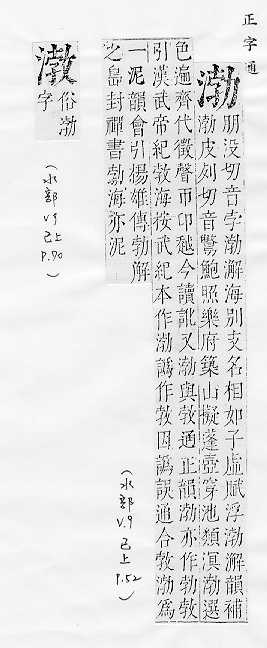 正字通
渤
朋没切音孛渤澥海别支名相如子虛賦浮渤澥韻補
渤皮刻切音鷩鮑照樂府築山擬蓬壺穿池類溟渤選
色遍齊代徵聲帀卬越今讀訛又渤與敦通正韻渤亦作勃敦
引漢武帝紀敦海按武紀本作渤譌作敦因譌誤通合敦渤爲
一泥韻會引揚雄傳勃解
之島封禪書勃海亦泥
(水部
V.9
己上
P.52)
漖
俗渤
字
(水部
V.9
己上
P.70)